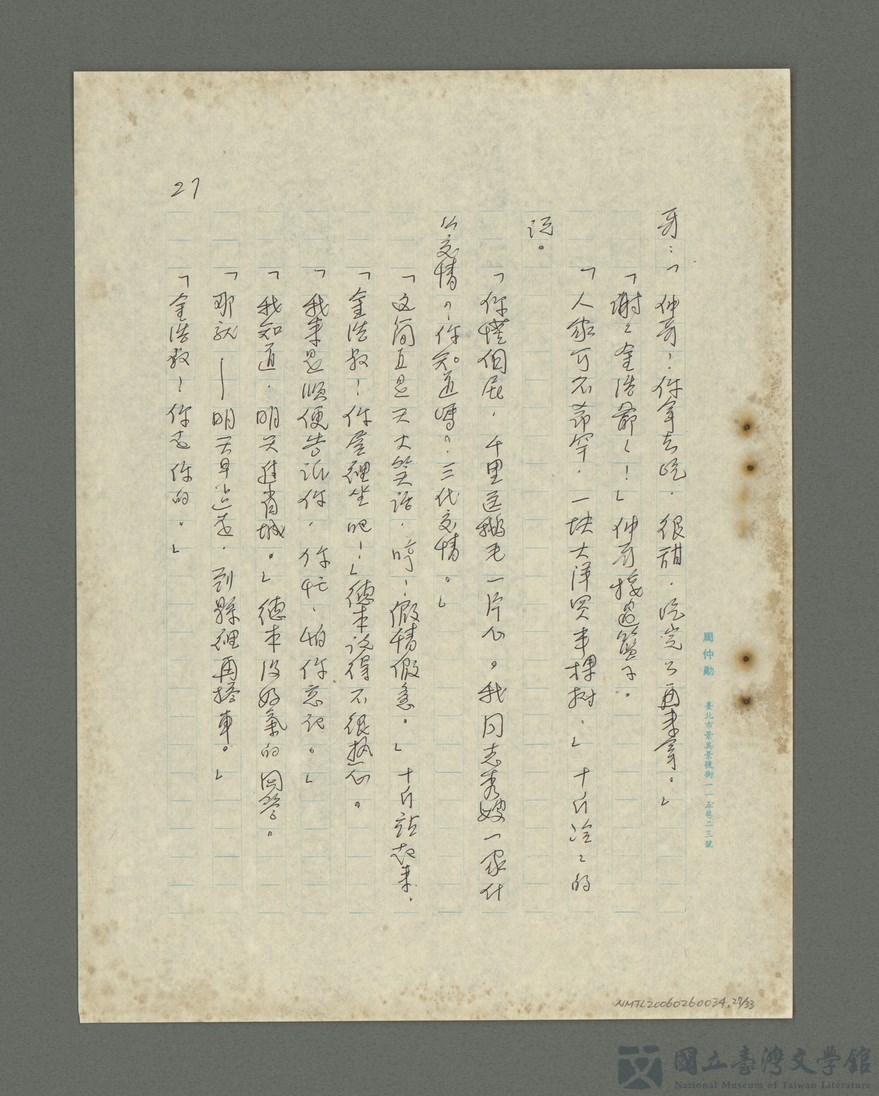 哥：「仲哥！你拿去吃，很甜，吃完了再来拿。」
「謝々金浩爺々！」仲哥接過籃子：
「人家可不希罕，一块大洋買半棵树，」十斤冷々的
说。
「你懂個屁，千里送鵝毛一片心。我同志秀嫂一家什
么交情？你知道嗎？三代交情。」
「这简直是天大笑话，哼！假情假意。」十斤站起来，
「金浩叔！你屋裡坐吧！」德本说得不很热心。
「我来是順便告訴你，你忙，怕你忘记。」
「我知道，明天進省城。」德本没好氣的回答。
「那就——明天早些走，到縣裡再搭車。」
「金浩叔！你走你的。」
27
周仲勳 臺北市景美景後街一一五巷二三號
NMTL20060260034,27/33
國立臺灣文學館
National Museum of Taiwan Literature